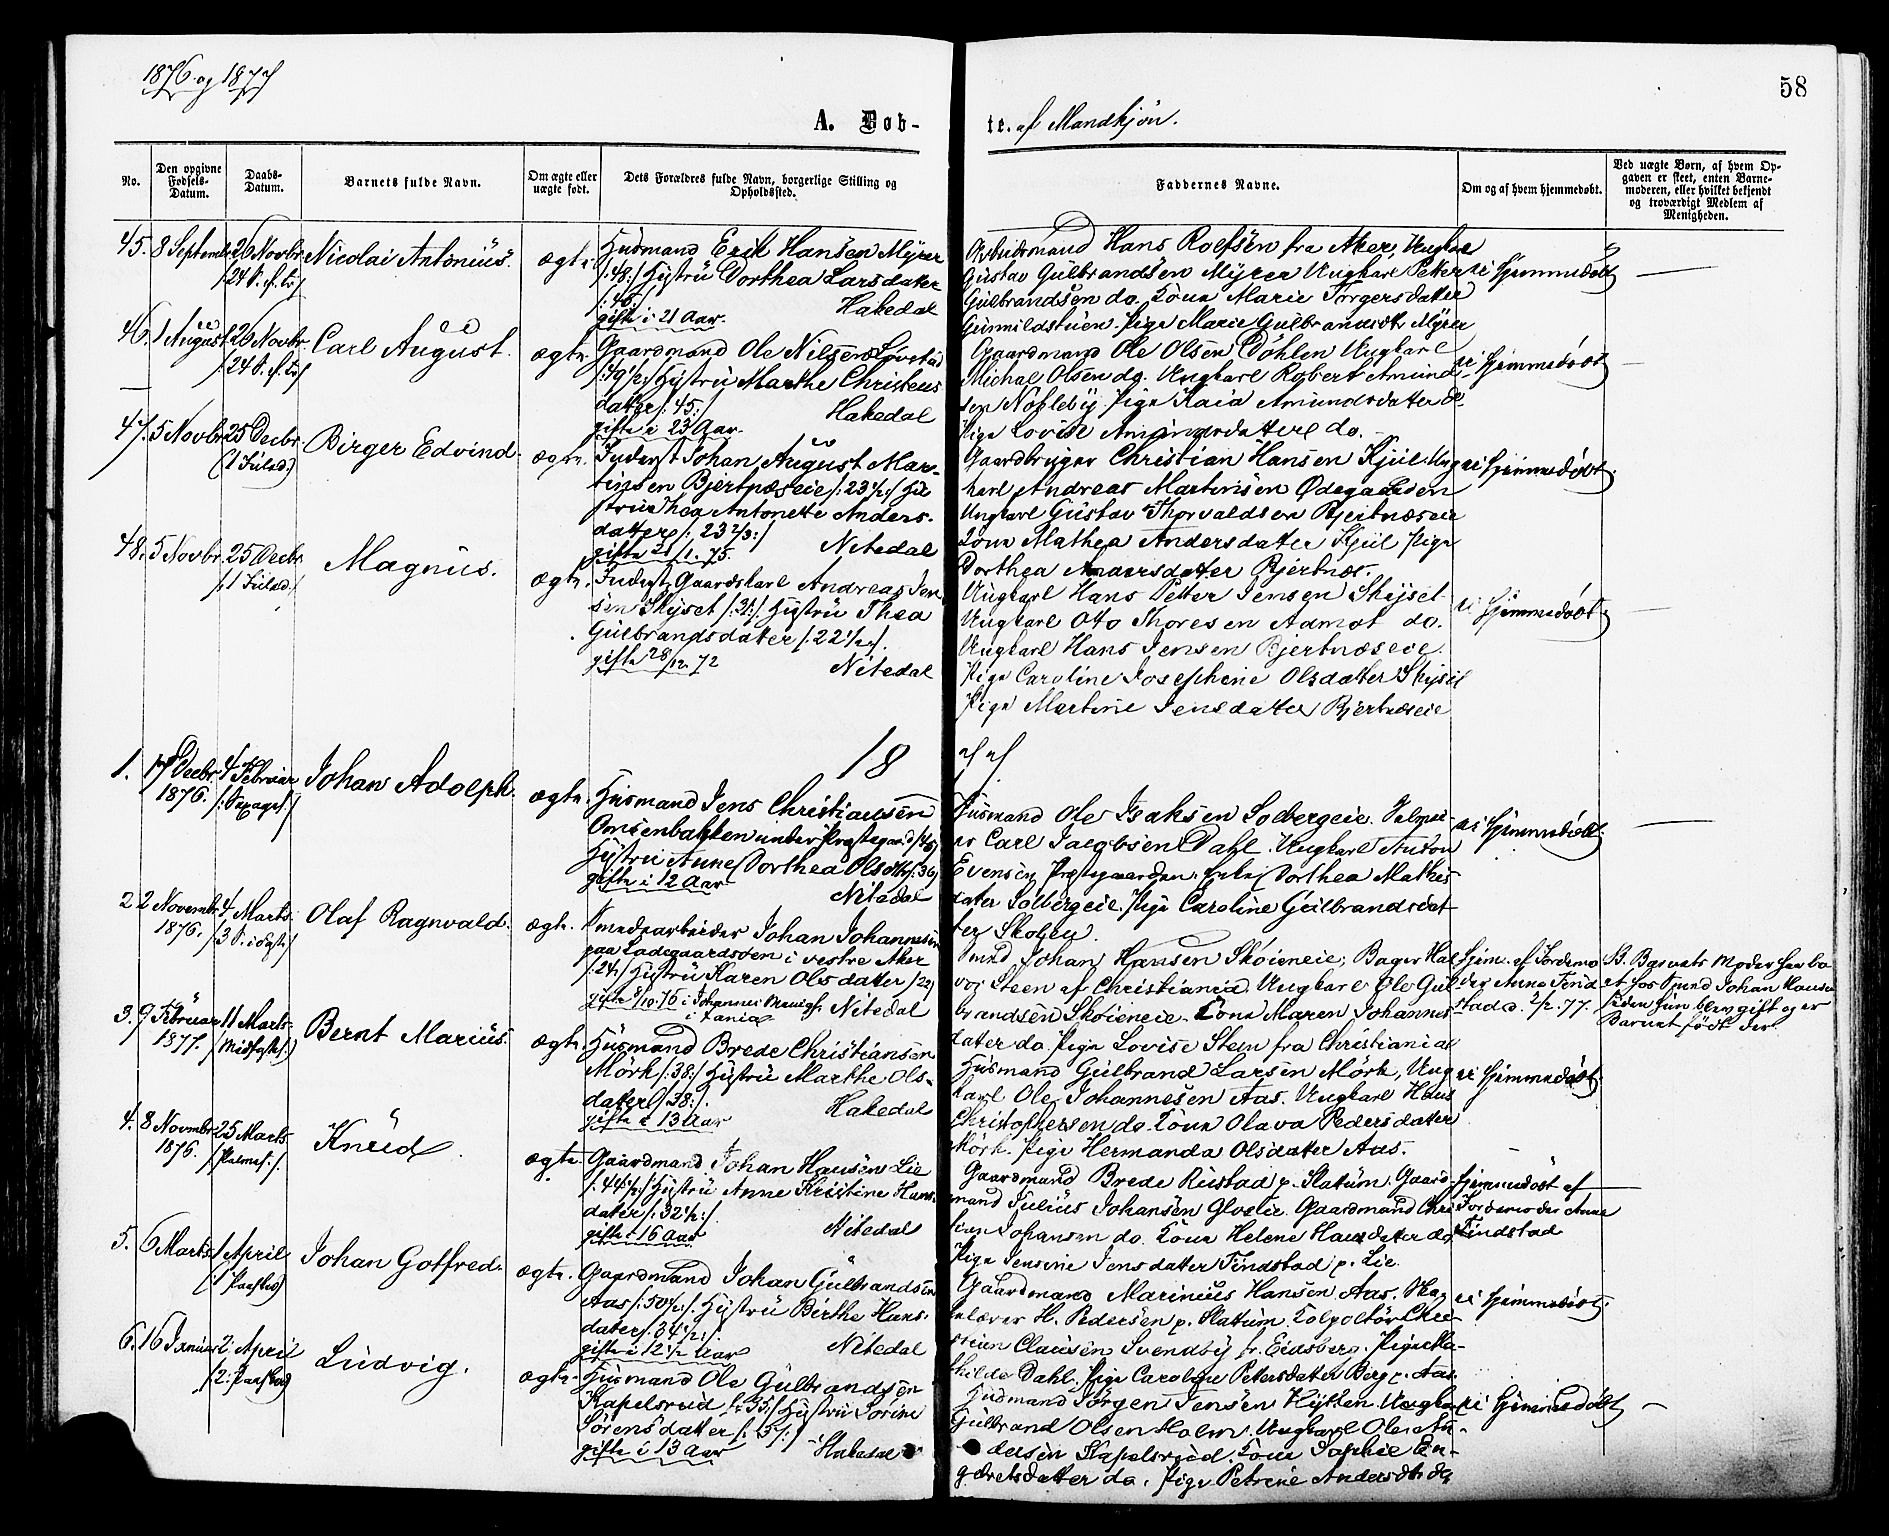 1876 og 1877
58
A. Døb-
te. af Mandkjøn.
No.
Den opgivne Fødsels-Datum.
Daabs-Datum.
Barnets fulde Navn.
Om ægte eller uægte født.
Dets Forældres fulde Navn, borgerlige Stilling og Opholdssted.
Faddernes Navne.
Om og af hvem hjemmedøbt.
Ved uægte Børn, af hvem Opgaven er skeet, enten Barnemoderen, eller hvilket bekjendt og troværdigt Medlem af Menigheden.
45. 8 Septembr 26 Novbr Nicolai Antonius. ægte.
/24 S. ef. Tr/
Husmand Erik Hansen Myrer
/:48:/ Hustru Dorthea Larsdatter
/:46:/ Hakedal
gifte i 21 Aar.
Arbeidsmand Hans Roelfsen fra Aker, Ungkarl
Gustav Gulbrandsen Myrer Ungkarl Petter
Gulbrandsen do. Kone Marie Torgersdatter
Gunnildstuen. Pige Marie Gulbrandsdtr Myrer
ei hjemmedøbt
46. 1 August 26 Novbr. Carl August. ægte.
/24 S. ef. Tr/
Gaardmand Ole Nilsen Løvstad
/:49 1/2/ Hustru Marthe Christens
datter /:45:/ Hakedal
gifte i 23 Aar.
Gaardmand Ole Olsen Døhlen Ungkarl
Michal Olsen do. Ungkarl Robert Amund
sen Nøkleby Pige Kaia Amundsdatter do
Pige Lovise Amundsdatter do.
ei hjemmedøbt
47. 5 Novbr 25 Decbr. Birger Edvind. ægte.
(1 Juled.)
Inderst Johan August Mar-
tinsen Bjertnæseie /:23 1/2:/ Hu
stru Thea Antonette Anders-
datter /:23 2/3:/ Nitedal
gifte 21/1. 75
Gaardbruger Christian Hansen Kjul Ung
karl Andreas Martinsen Ødegaarden
Ungkarl Gustav Thorvaldsen Bjertnæseie
Kone Mathea Andersdatter Kjul Pige
Dorthea Andersdatter Bjertnæs.
ei hjemmedøbt.
48. 5 Novbr. 25 Decbr. Magnus. ægte.
/:1 Juled./
Inderst Gaardskarl Andreas Jen
sen Skyset /:31:/. Hustru Thea
Gulbrandsdatter /:22 1/2/.
gifte 28/12. 72 Nitedal
Ungkarl Hans Petter Jensen Skyset
Ungkarl Oto Thoresen Aamot do.
Ungkarl Hans Jensen Bjertnæseie.
Pige Caroline Josephine Olsdatter Skyset
Pige Martine Jensdatter Bjertnæseie
ei hjemmedøbt
1877.
1. 17 Decbr. 4 Februar Johan Adolph. ægte.
1876. /:Sexages:/
Husmand Jens Christiansen
Omsenbakken under Præstegaard /:45/
Hustru Anne Dorthea Olsdtr /:36/
gifte i 12 Aar
Nitedal
Husmand Ole Isaksen Solbergeie.
er Carl Jacobsen Dahl. Ungkarl Anton
Evensen Præstegaarden. Enke Dorthea Mathis
datter Solbergeie. Pige Caroline Gulbrandsdat
ter Skolen.
ei hjemmedøbt.
2. 2 Novembr 4. Marts. Olaf Ragnvald. ægte.
1876. /3 S. i Faste/
Smedearbeider Johan Johannesen
paa Ladegaardsøen i vestre Aker
/:24:/ Hustru Karen Olsdatter /22/
gifte 8/10. 76 i Johannes Menigh. Nitedal
i Xania
Smed Johan Hansen Skøieneie, Bager Hal
vor Steen af Christiania. Ungkarl Ole Gul
brandsen Skøieneie. Kone Maren Johannes
datter do Pige Lovise Steen fra Christiania
Hjem. af Jordemo
der Anne Find
stad d. 2/2. 77.
B. Barnets Moder har bo
et hos Smed Johan Hansen
siden hun blev gift og er
Barnet født der.
3. 9 Februar 11 Marts. Bernt Marius. ægte.
1877. /Midfaste/
Husmand Brede Christiansen
Mørk /:38:/ Hustru Marthe Ols-
datter /:38:/. Hakedal
gifte i 13 Aar
Husmand Gulbrand Larsen Mørk, Ung
karl Ole Johannesen Aas. Ungkarl Hans
Christophersen do. Kone Olava Pedersdatter
Mørk. Pige Hermanda Olsdatter Aas.
ei hjemmedøbt
4. 8 Novmbr. 25 Marts. Knud. ægte.
1876. /Palmes:/.
Gaardmand Johan Hansen Lie
/:44 1/2/ Hustru Anne Kristine Hans
datter /:32 1/2:/.
gifte i 16 Aar Nitedal
Gaardmand Brede Rustad p. Slatum. Gaard
mand Julius Johansen Glosli. Gaardmand Chri
stian Johansen do. Kone Helene Hansdatter do
Pige Jensine Jensdatter Findstad p. Lie
hjemmedøbt af
Jordemoder Anne
Findstad
5. 6 Marts 1 April Johan Gotfred. ægte.
(1 Paaskd)
Gaardmand Johan Gulbrandsen
Aas /:50 1/2:/. Hustru Birthe Hans-
datter /:34 1/2:/.
gifte i 12 1/2 Aar Nitedal
Gaardmand Marinius Hansen Aas. Skol
lærer H. Pedersen p. Slatum. Kolportør Chri
stian Clausen Svendby fr. Eidsberg. Pige Ma-
thilde Dahl. Pige Caroline Petersdatter Berg p. Aas.
ei hjemmedøbt.
6. 16 Januar 2. April Ludvig. ægte.
/2: Paaskd/
Husmand Ole Gulbrandsen
Kapelsrud /:35:/ Hustru Sørine
Sørensdatter /:37:/
gifte i 13 Aar Hakedal
Husmand Jørgen Jensen Hytten Ungkarl
Gulbrand Olsen Holm. Ungkarl Ole An-
dersen Kapelsrud. Kone Sophie En-
gebretsdatter do. Pige Petrine Andersdtr do
ei hjemmedøbt